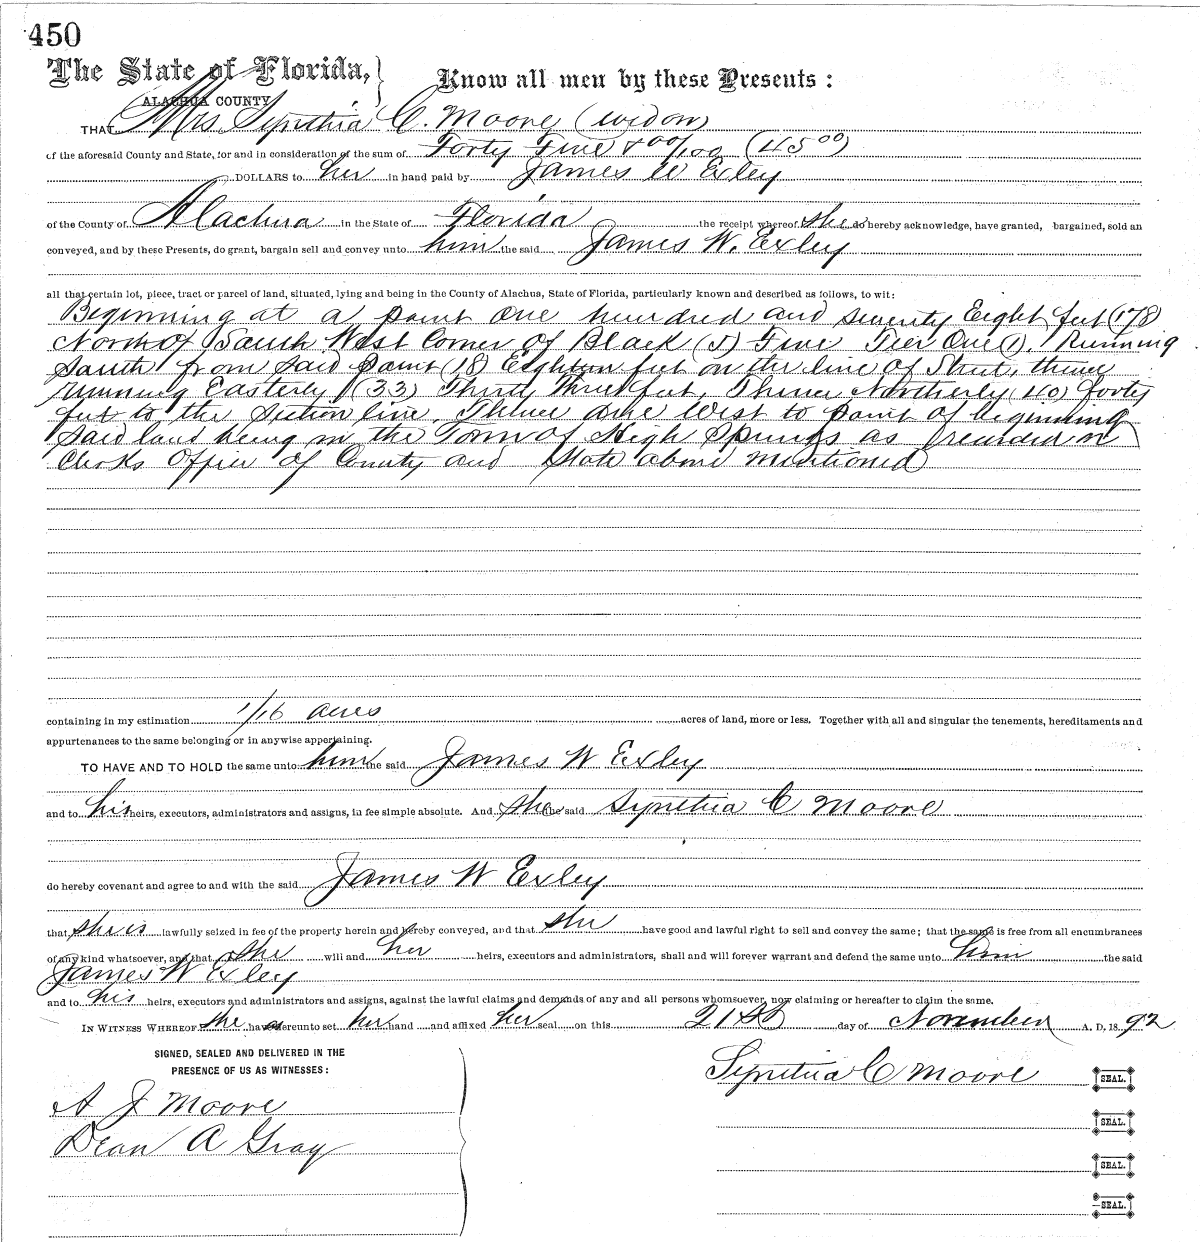 450
The State of Florida, } Know all men by these Presents :
ALACHUA COUNTY
THAT Mrs Synthia C. Moore (widow)
of the aforesaid County and State, for and in consideration of the sum of Forty Five & 00/100 (45 00)
DOLLARS to her in hand paid by James W Exley
of the County of Alachua in the State of Florida the receipt whereof she do hereby acknowledge, have granted, bargained, sold an
conveyed, and by these Presents, do grant, bargain sell and convey unto him the said James W. Exley
all that certain lot, piece, tract or parcel of land, situated, lying and being in the County of Alachua, State of Florida, particularly known and described as follows, to wit:
Beginning at a point one hundred and seventy Eight feet (178)
North of South West Corner of Block (5) Five Tier One (1). Running
South from said point (18) Eighteen feet on the line of Street, thence
running Easterly (33) Thirty Three feet, Thence Northerly (40) forty
feet to the section line. Thence due West to point of beginning
said land being in the Town of High Springs as recorded in
Clerks Office of County and State above mentioned
containing in my estimation 1/16 acres acres of land, more or less. Together with all and singular the tenements, hereditaments and
appurtenances to the same belonging or in anywise appertaining.
TO HAVE AND TO HOLD the same unto him the said James W Exley
and to his heirs, executors, administrators and assigns, in fee simple absolute. And she the said Synthia C Moore
do hereby covenant and agree to and with the said James W Exley
that she is lawfully seized in fee of the property herein and hereby conveyed, and that she have good and lawful right to sell and convey the same; that the same is free from all encumbrances
of any kind whatsoever, and that she will and her heirs, executors and administrators, shall and will forever warrant and defend the same unto him the said
James W Exley
and to his heirs, executors and administrators and assigns, against the lawful claims and demands of any and all persons whomsoever, now claiming or hereafter to claim the same.
IN WITNESS WHEREOF she has hereunto set her hand and affixed her seal on this 21st day of November A. D. 1892
SIGNED, SEALED AND DELIVERED IN THE
PRESENCE OF US AS WITNESSES:
Synthia C Moore SEAL.
A J Moore
SEAL.
Dean A Gray
SEAL.
SEAL.